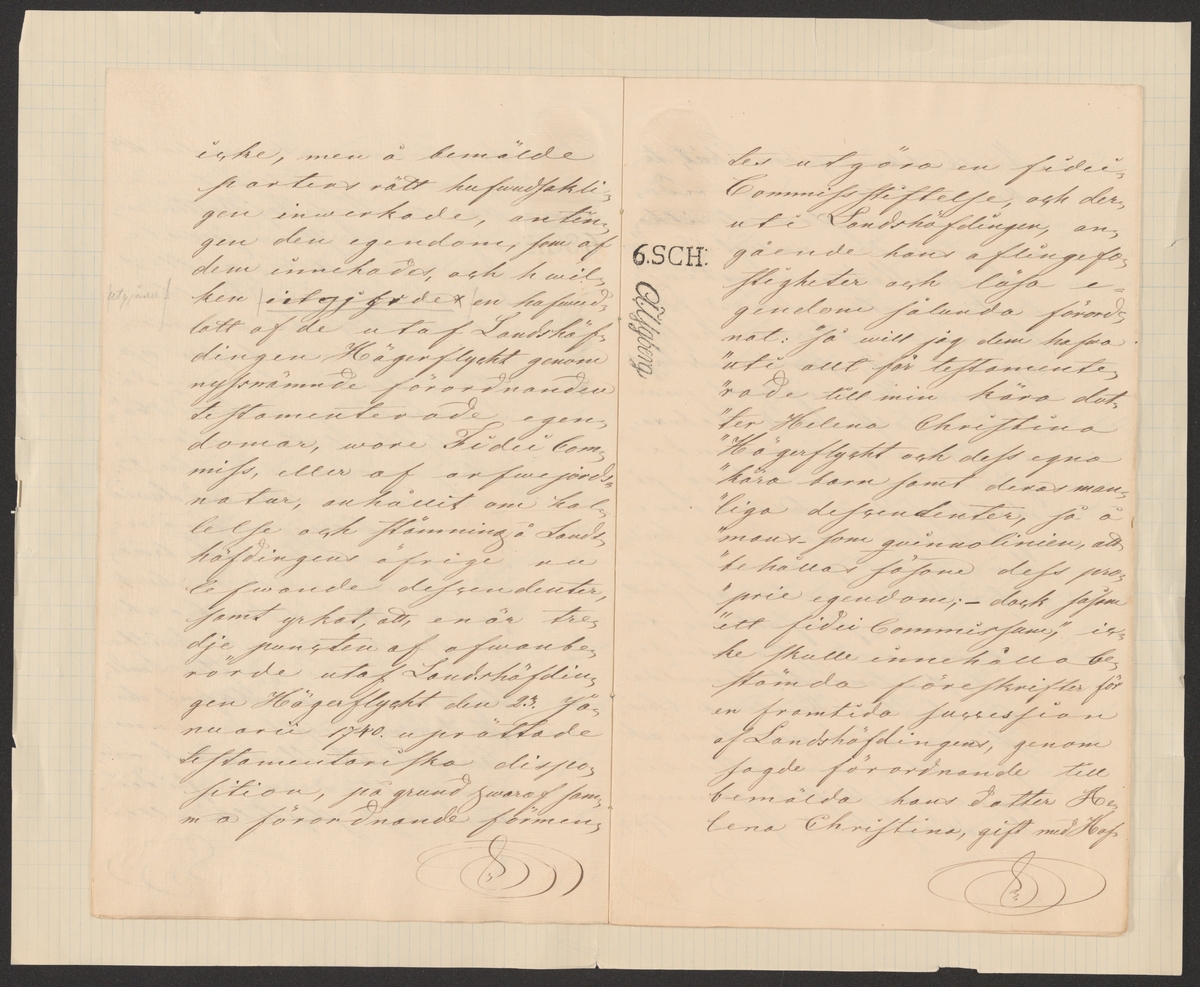 icke, men å bemälde
parters rätt hufwudsakli-
gen inwerkade, antin-
gen den egendom, som af
dem innehades, och hwil-
ken utgjorde en hufwud-
lott af de utaf Landshöf-
dingen Hägerflycht genom
nyssnämnde förordnanden
testamenterade egen-
domar, wore Fidei Com-
miss, eller af arfwejords-
natur, anhållit om kal-
lelse och stämning å Lands-
höfdingens öfrige nu
lefwande descendenter,
samt yrkat, att, enär tre-
dje puncten af ofwanbe-
rörde utaf Landshöfdin-
gen Hägerflycht den 23. Ja-
nuarii 1740. uprättade
testamentariska dispo-
sition, på grund hwaraf sam-
ma förordnande förmen-
6.SCH:
tes utgöra en fidei-
Commissstiftelse, och der-
uti Landshöfdingen, an-
gående hans aflingefa-
stigheter och lösa e-
gendom sålunda förord-
nat: "så will jag dem hafwa
"uti allt för testamente-
"rade till min kära dot-
"ter Helena Christina
"Hägerflycht och dess egna
"kära barn samt deras man-
"liga descendenter, så å
"mans- som qwinnolinien, att
"behållas såsom dess pro-
"prie egendom; - dock såsom
"ett fidei Commissum," ic-
ke skulle innehålla be-
stämda föreskrifter för
en framtida succession
af Landshöfdingens, genom
sagde förordnande till
bemälda hans dotter He-
lena Christina, gift med Hof-